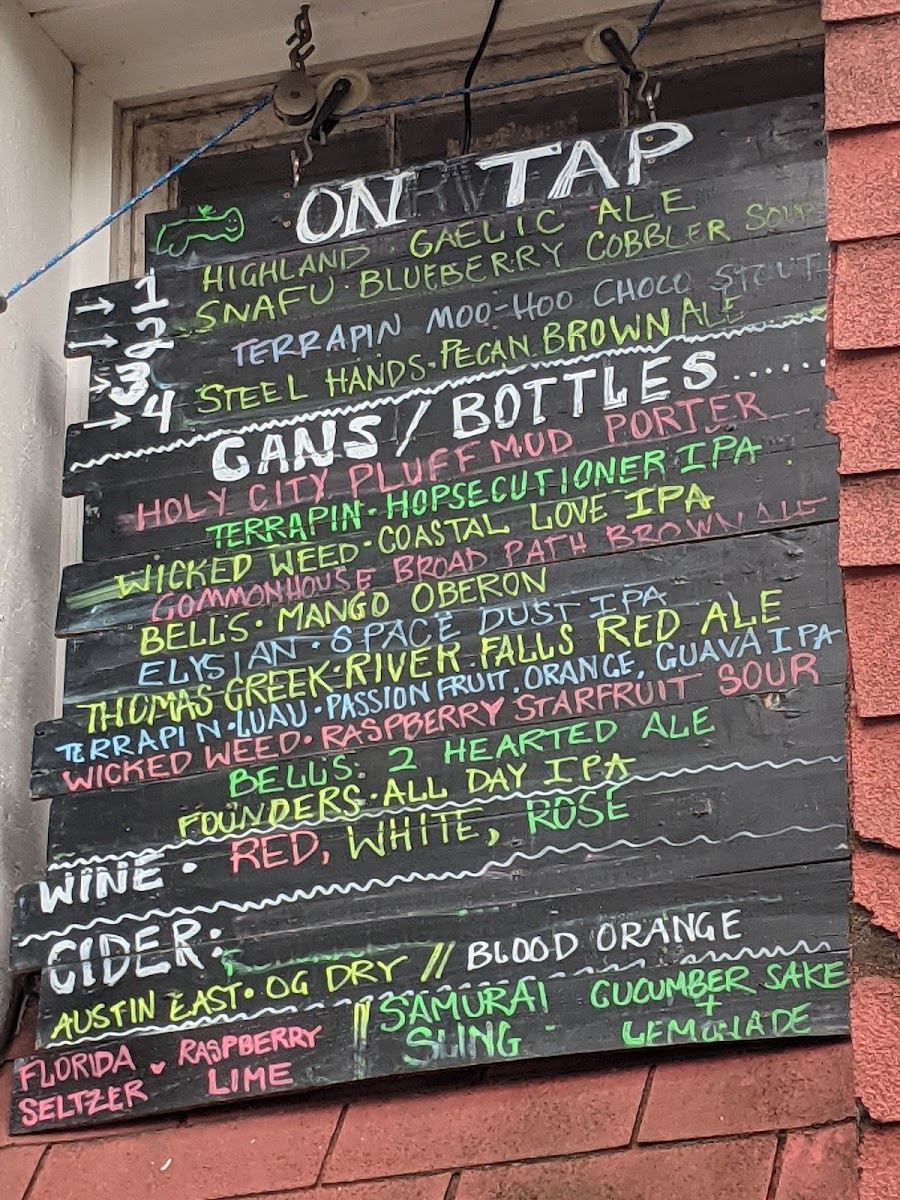 ON TAP
→ 1 HIGHLAND GAELIC ALE
→ 2 SNAFU · BLUEBERRY COBBLER SOUR
→ 3 TERRAPIN MOO-HOO CHOCO STOUT
→ 4 STEEL HANDS · PECAN BROWN ALE
CANS / BOTTLES......
HOLY CITY PLUFF MUD PORTER
TERRAPIN · HOPSECUTIONER IPA
WICKED WEED · COASTAL LOVE IPA
COMMONHOUSE BROAD PATH BROWN ALE
BELL'S · MANGO OBERON
ELYSIAN · SPACE DUST IPA
THOMAS CREEK · RIVER FALLS RED ALE
TERRAPIN · LUAU · PASSION FRUIT, ORANGE, GUAVA IPA
WICKED WEED · RASPBERRY STARFRUIT SOUR
BELLS: 2 HEARTED ALE
FOUNDERS · ALL DAY IPA
WINE · RED, WHITE, ROSÉ
CIDER:
AUSTIN EAST · OG DRY // BLOOD ORANGE
FLORIDA SELTZER · RASPBERRY LIME // SAMURAI SLING - CUCUMBER SAKE + LEMONADE